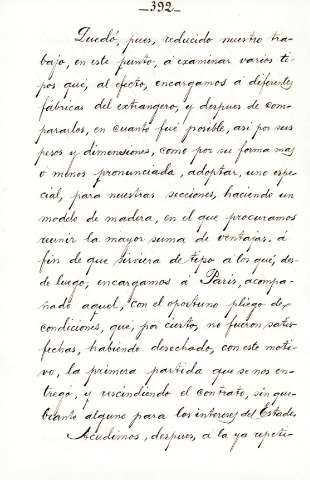 —392—
Quedó, pues, reducido nuestro tra-
bajo, en este punto, á examinar varios ti-
pos que, al efecto, encargamos á diferentes
fábricas del extrangero, y despues de com-
pararlos, en cuanto fué posible, asi por sus
pesos y dimensiones, como por su forma mas
o menos pronunciada, adoptar, uno espe-
cial, para nuestras secciones, haciendo un
modelo de madera, en el que procuramos
reunir la mayor suma de ventajas, á
fin de que sirviera de tipo a los que, des-
de luego, encargamos á Paris, acompa-
ñado aquel, con el oportuno pliego de
condiciones, que, por cierto, no fueron satis-
fechas, habiendo desechado, con este moti-
vo, la primera partida que se nos en-
tregó, y rescindiendo el contrato, sin que-
branto alguno para los intereses del Estado.
Acudimos, despues, a la ya repeti-